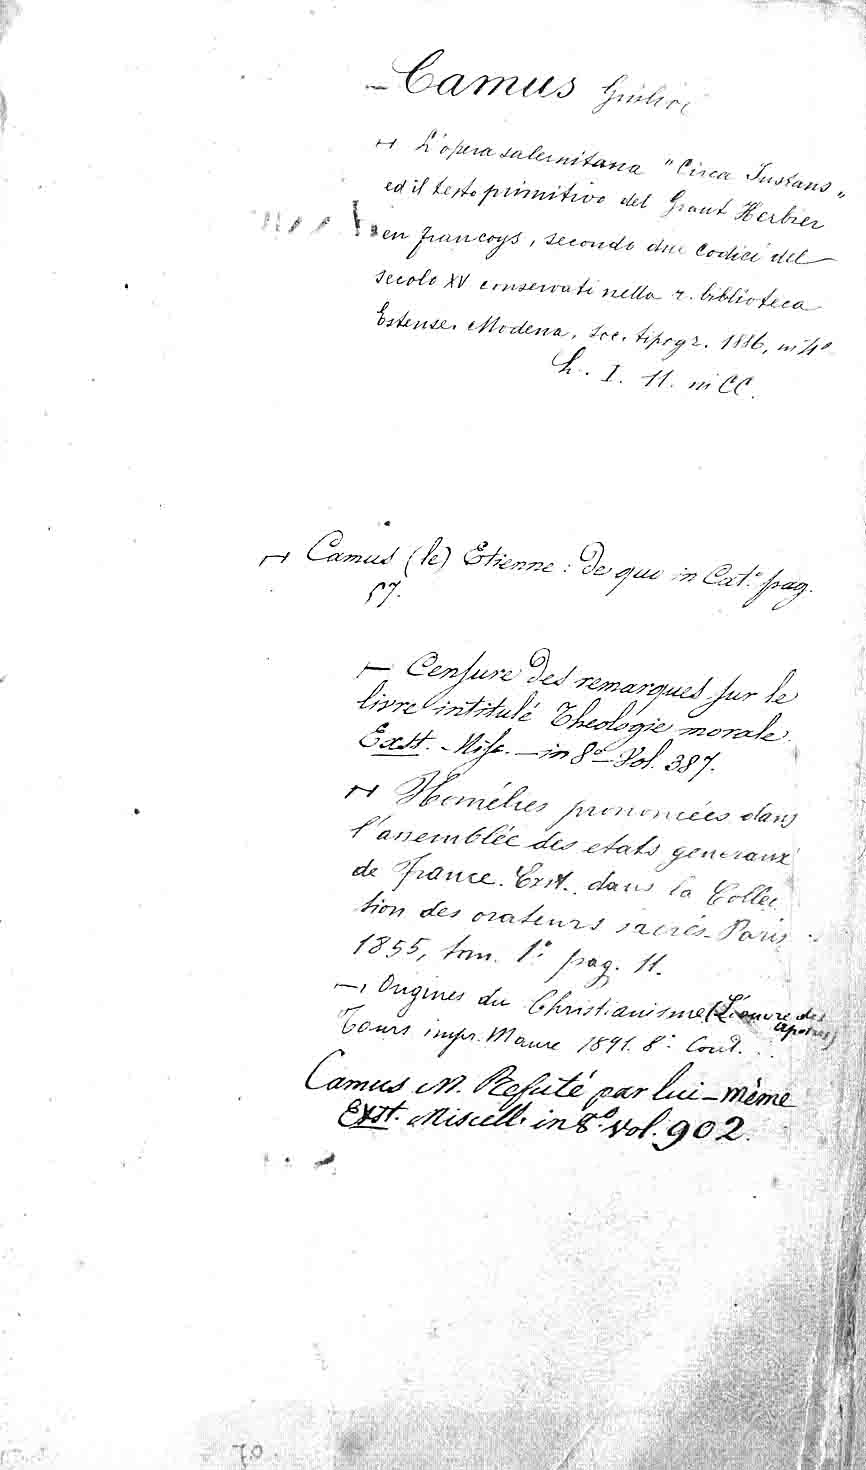 – Camus Giulio
⊢ L'opera salernitana "Circa Instans"
ed il testo primitivo del Grant Herbier
en francoys, secondo due codici del
secolo XV conservati nella r. biblioteca
Estense. Modena, soc. tipogr. 1886, in 4º
h. I. 11. in CC.
⊢ Camus (le) Etienne: de quo in Cat.º pag.
57.
⊢ Censure des remarques sur le
livre intitulé Theologie morale.
Exst. Misc. in 8º Vol. 387.
⊢ Homélies prononcées dans
l'assemblée des etats generaux
de France. Exst. dans la Collec
tion des orateurs sacrés. Paris
1855, tom. 1º pag. 11.
– Origines du Christianisme (L'œuvre des
apotres)
Tours impr. Mame 1891. 8º
Camus M. Refuté par lui-même
Exst. Miscell. in 8º Vol. 902.